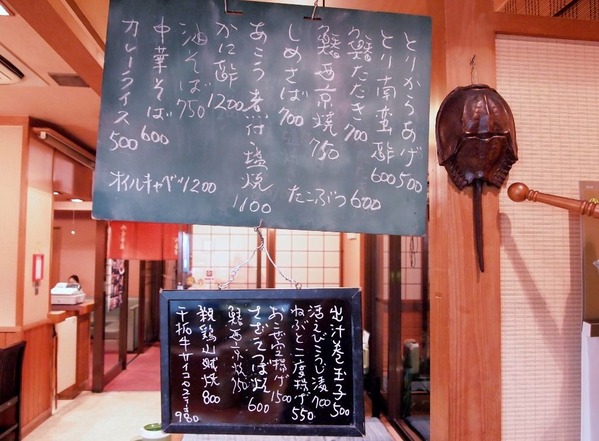 とりからあげ 500
とり南蛮酢 600
鰆たたき 700
鰆西京焼 750
しめさば 700
あこう煮付・塩焼 1600
かに酢 1200
油そば 750
中華そば 600
カレーライス 500
たこぶつ 600
オイルキャベツ 1200
出汁巻玉子 500
活えびこうじ漬 700
ねぶと二度揚げ 550
おこぜ空揚げ 1500
さざえつぼ焼 600
鰆西京焼 750
親鶏山賊焼 800
千屋牛サイコロステーキ 980